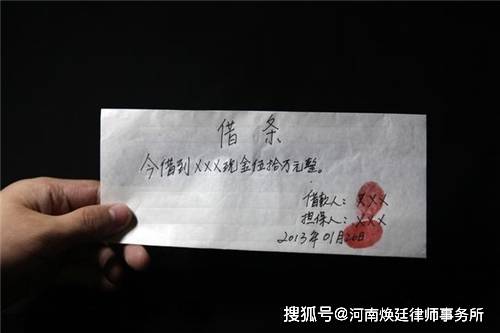 借条
今借到XXX现金伍拾万元整。
借款人：XXX
担保人：XXX
2013年01月20日
搜狐号@河南焕廷律师事务所